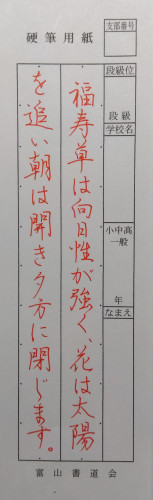 硬筆用紙
支部番号
段級位
段級
学校名
小中高
一般
年
なまえ
福寿草は向日性が強く、花は太陽
を追い朝は開き夕方に閉じます。
富山書道会